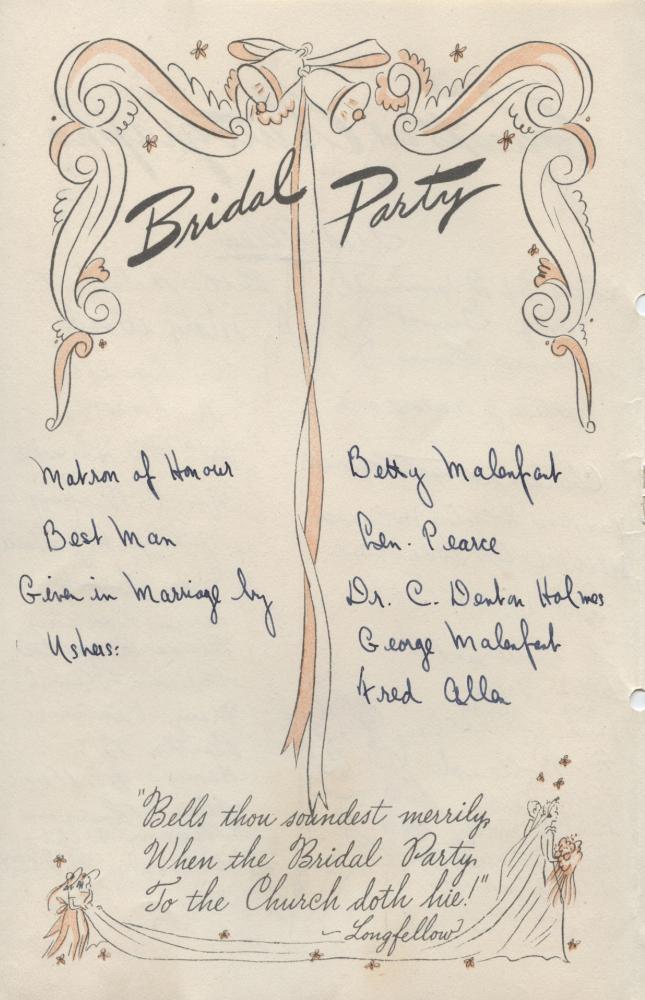 Bridal Party
Matron of Honour Betty Malenfant
Best Man Len. Pearce
Given in Marriage by Dr. C. Denton Holmes
Ushers: George Malenfant
Fred Allen
"Bells thou soundest merrily,
When the Bridal Party,
To the Church doth hie!"
~ Longfellow